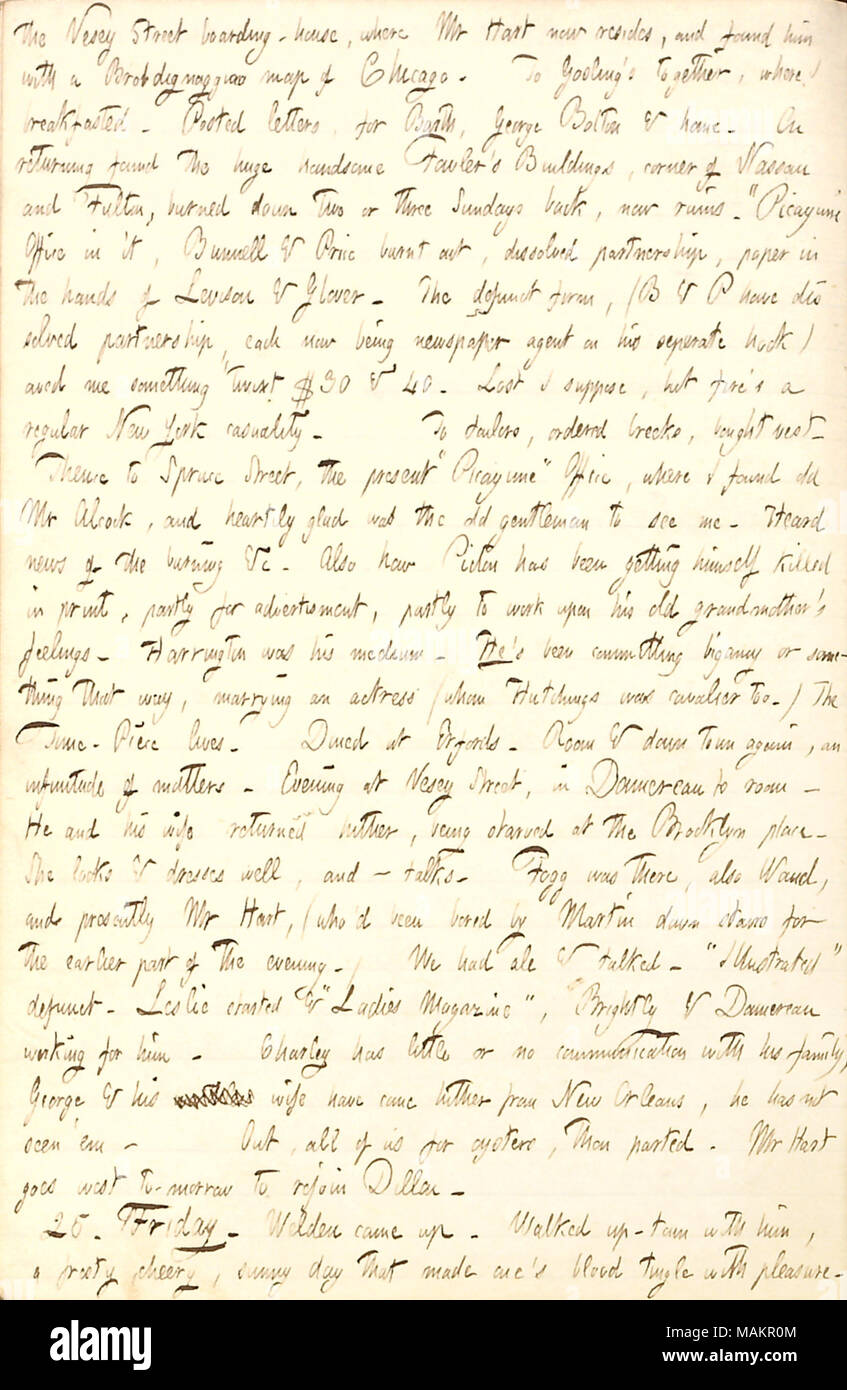 the Vesey Street boarding-house, where Mr Hart now resides, and found him
with a Brobdignaggian map of Chicago. To Gosling's together, where I
breakfasted. Posted letters, for Barth, George Bolton & home. On
returning found the huge handsome Fowler's Buildings, corner of Nassau
and Fulton, burned down two or three Sundays back, now ruins. "Picayune
Office in it, Bunnell & Price burnt out, dissolved partnership, paper in
the hands of Levison & Glover. The defunct firm, (B & P have dis
solved partnership, each now being newspaper agent on his seperate hook)
owed me something 'twixt $30 & 40. Lost I suppose, but fire's a
regular New York casuality. To tailors, ordered breeks, bought vest.
Thence to Spruce Street, the present "Picayune" Office, where I found old
Mr Alcock, and heartily glad was the old gentleman to see me. Heard
news of the burning &c. Also how Picton has been getting himself killed
in print, partly for advertisment, partly to work upon his old grandmother's
feelings. Harrington was his medium. He's been committing bigamy or some-
thing that way, marrying an actress (whom Hutchings was cavalier to.) The
Time-Piece lives. Dined at Erfords. Room & down town again, an
infinitude of matters. Evening at Vesey Street, in Damoreau's room.
He and his wife returned hither, being starved at the Brooklyn place.
She looks & dresses well, and - talks. Fogg was there, also Waud,
and presently Mr Hart, (who'd been bored by Martin down stairs for
the earlier part of the evening.) We had ale & talked. "Illustrated"
defunct. Leslie started a "Ladies Magazine", Brightly & Damoreau
working for him. Charley has little or no communication with his family,
George & his wife have come hither from New Orleans, he has not
seen 'em. Out, all of us for oysters, then parted. Mr Hart
goes west to-morrow to rejoin Dillon.
25. Friday. Welden came up. Walked up-town with him,
a frosty cheery, sunny day that made one's blood tingle with pleasure.
alamy
Image ID: MAKR0M
www.alamy.com